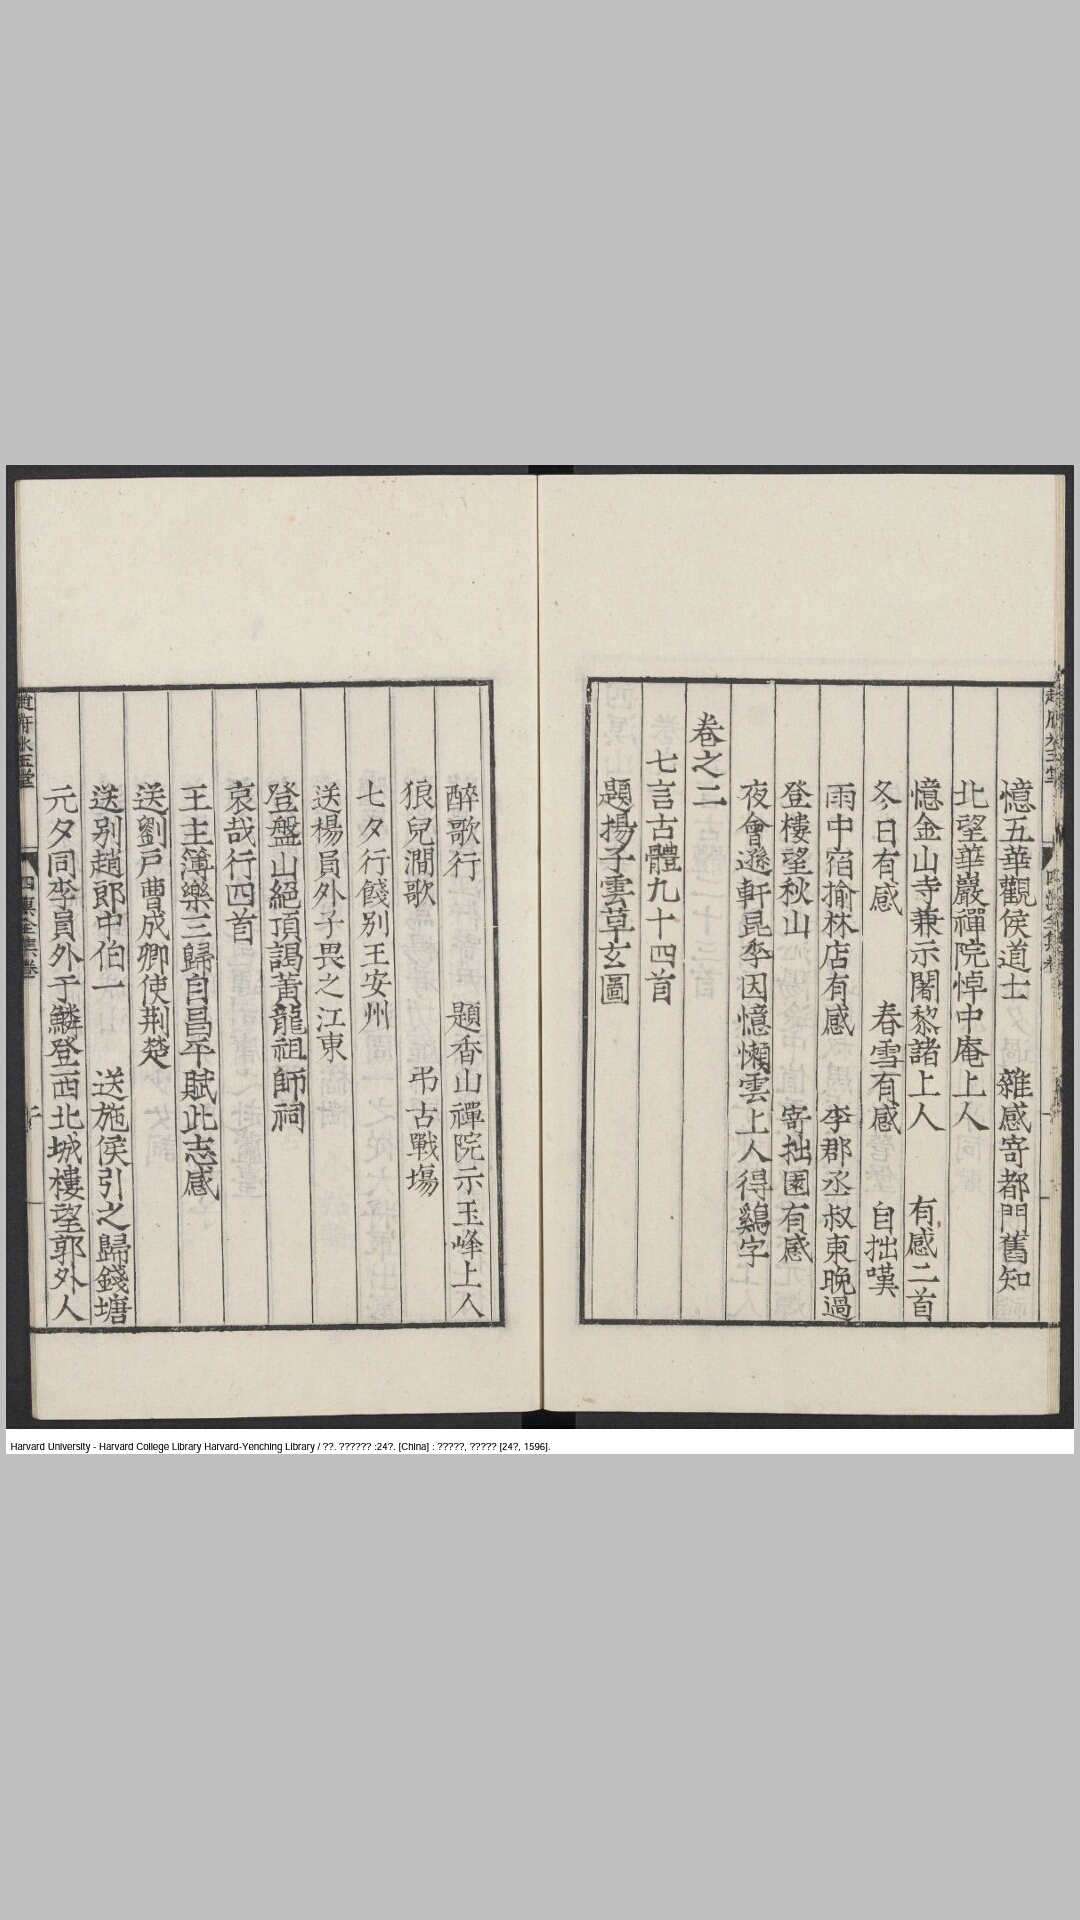 憶五華觀侯道士 雜感寄都門舊知
北望華巖禪院悼中庵上人
憶金山寺兼示闍黎諸上人 有感二首
冬日有感 春雪有感 自拙嘆
雨中宿揄林店有感 李郡丞叔東晚過
登樓望秋山 寄拙園有感
夜會遜軒昆季因憶懶雲上人得鷄字
卷之二
七言古體九十四首
題揚子雲草玄圖
醉歌行 題香山禪院示玉峰上人
狼兒澗歌 弔古戰塲
七夕行餞别王安州
送楊員外子畏之江東
登盤山絕頂謁黃龍祖師祠
哀哉行四首
王主簿樂三歸自昌平賦此志感
送劉戶曹成卿使荆楚
送别趙郎中伯一 送施侯引之歸錢塘
元夕同李員外于鱗登西北城樓望郭外人
四溟全集卷
Harvard University - Harvard College Library Harvard-Yenching Library / ??. ?????? :24?. [China] : ?????, ????? [24?, 1596].